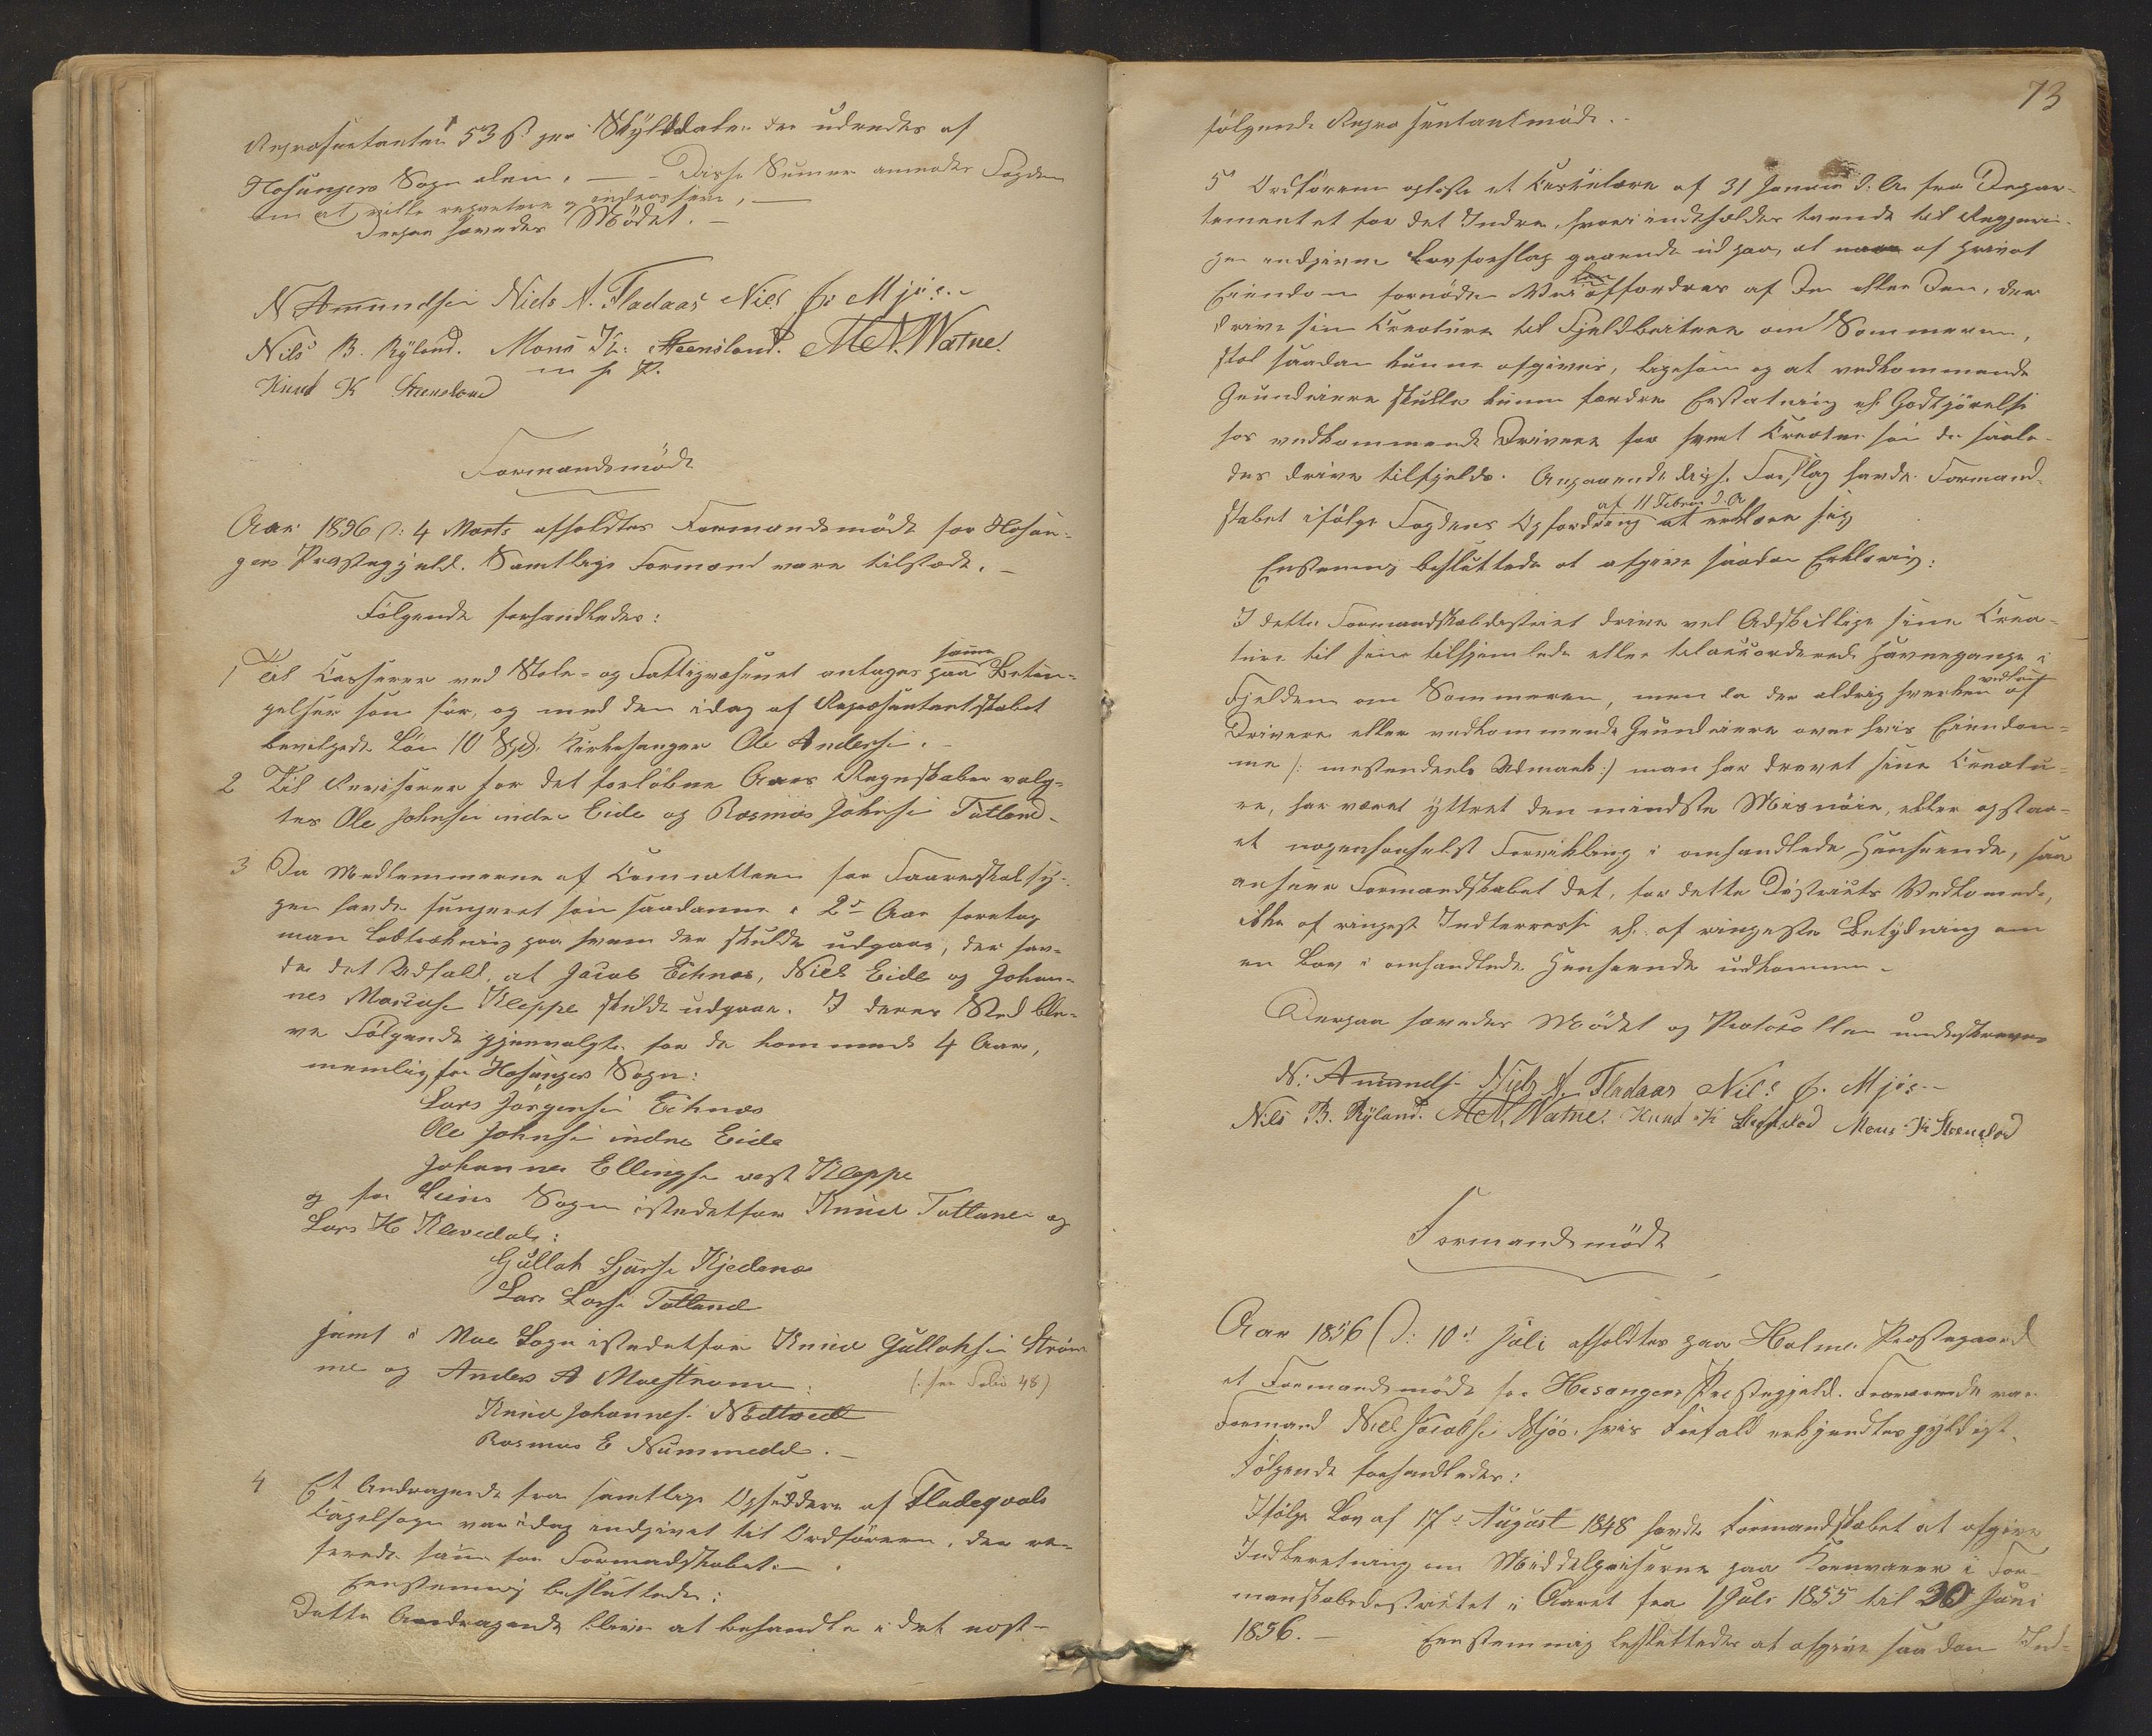 Repræsentanter 53 ß pr. Skylddaler der udredes af
Hosangers Sogn alene. — Disse Summer anmodes Fogden
om at ville repartere og inddressere, —
Derpaa hævedes Mødet. —
N Amundsen Niels N. Fladaas Niels J. Mjøs.
Nils B. Ryland. Mons K. Steensland. M. N. Watne.
Knud K Steensland m f P.
Formandsmøde
Aar 1856 d: 4 Marts afholdtes Formandsmøde for Hosan-
gers Præstegjeld. Samtlige Formænd vare tilstæde. —
Følgende forhandledes:
1 Til Kasserer ved Skole- og Fattigvæsenet antages paa samme Betin-
gelser som før, og med den idag af Repræsentantskabet
bevilgede Løn 10 Spd. Kirkesanger Ole Andersen. —
2 Til Revisorer for det forløbne Aars Regnskaber valg-
tes Ole Johnsen indre Eide og Rasmus Johnsen Tutland.
3 Da Medlemmerne af Comiteen for
havde fungeret som saadanne i 2de Aar foretog
man Lodtrækning paa hvem der skulde udgaae, der hav-
de det Udfald, at Jacob Echnæs, Niels Eide og Johan-
nes Kleppe skulde udgaae. I deres Sted ble-
ve Følgende gjenvalgte for de kommende 4 Aar,
nemlig for Hosanger Sogn:
Lars Jørgensen Echnæs
Ole Johnsen indre Eide
Johannes Ellingsen vest Kleppe
og for Sogn istedetfor Knud Totland og
Lars H Klevedal:
Gullak Kjedenæs
Lars Larsen Totland
samt i Moe Sogn istedetfor Knud Gullaksen Strøm-
me og Anders A Moestrømme: (: see Folio 48)
Knud Johannesen Nødtvedt
Rasmus E Nummedal. —
4 Et Andragende fra samtlige Opsiddere af Fladeqvals
Capelsogn var idag indgivet til Ordføreren, der re-
ferede samme for Formandskabet. —
Eenstemmig besluttedes:
Dette Andragende bliver at behandle i det næst-
73
følgende Repræsentantmøde. —
5 Ordføreren oplæste et Cirkulære af 31 Januar d. A. fra Depar-
tementet for det Indre, hvori indeholdes tvende til Regjerin-
gen indgivne Lovforslag gaaende ud paa, at naar af privat
Eiendom fornøden Vei kan affordres af Den eller Dem, der
drive sine Kreature til Fjeldbeiterne om Sommeren,
skal saadan kunne afgives, ligesom og at vedkommende
Grundeiere skulle kunne fordre Erstatning el. Godtgjørelse
hos vedkommende Drivere for hvert Kreatur som de saale-
des drive tilfjelds. Angaaende disse Forslag havde Formand-
skabet ifølge Fogdens Opfordring af 11 Febru. d. A at erklære sig
Eenstemmig besluttede at afgive saadan Erklæring:
I dette Formandskabdistrict drive vel Adskillige sine Krea-
ture til sine tilhjemlede eller tilaccorderede Havnegange i
Fjeldene om Sommeren, men da der aldrig hverken af
Drivere eller vedkommende Grundeiere over hvis Eiendom-
me (: mestendeels Udmark:) man har drevet sine Kreatu-
re, har været yttret den mindste Misnøie, eller opstaa-
et nogensomhelst Forvikling i omhandlede Henseende, saa
anseer Formandskabet det, for dette Districts Vedkommende,
ikke af ringeste Indterresse el. af ringeste Betydning om
en Lov i omhandlede Henseende udkommer. —
Derpaa hævedes Mødet og Protocollen underskreven
N. Amunds. Niels N. Fladaas Niels J. Mjøs.
Nils B. Ryland. M. N. Watne. Knud K Stensland Mons K Steensland
Formandsmøde
Aar 1856 d: 10de Juli afholdtes paa Holme Præstegaard
et Formandsmøde for Hosangers Præstegjeld. Fraværende var
Formand Niels Jacobsen Mjøs, hvis Forfald erkjendtes gyldigt.
Følgende forhandledes:
Ifølge Lov af 17de August 1848 havde Formandskabet at afgive
Indberetning om Middelpriserne paa Kornvarer i For-
manskabsdistrictet i Aaret fra 1 Juli 1855 til 30 Juni
1856. — Eenstemmig besluttedes at afgive saadan Ind-